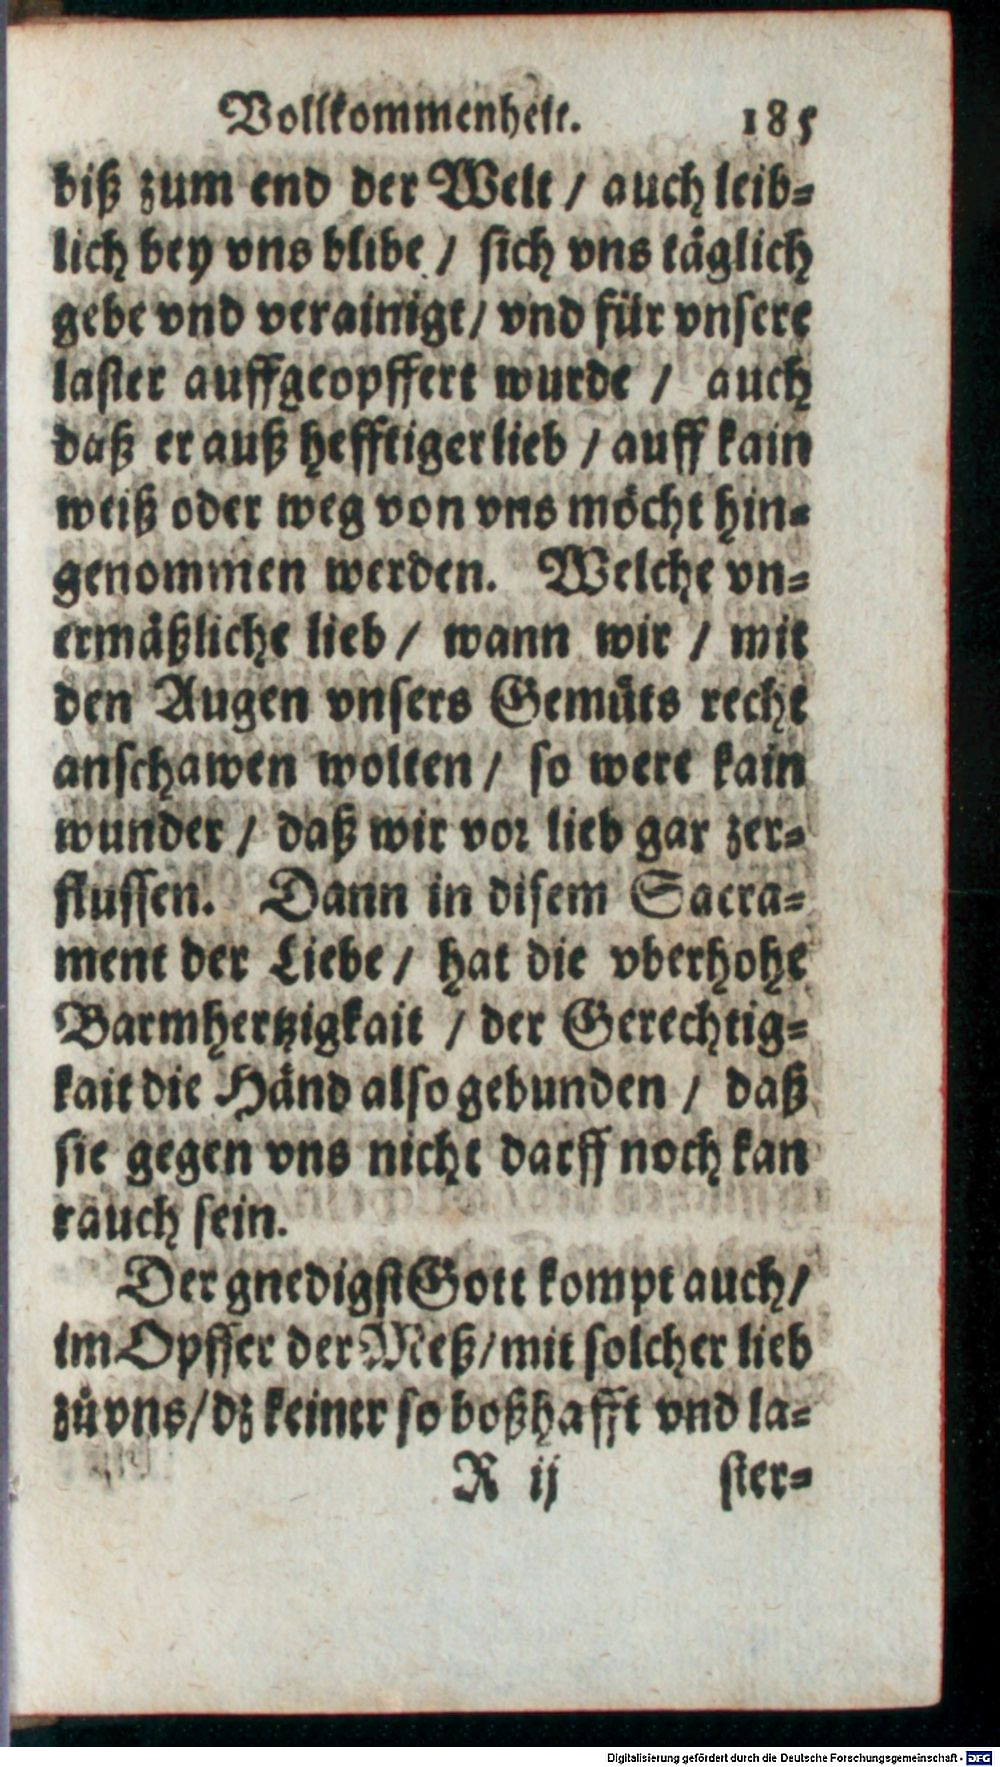 Vollkommenheit. 185
biß zum end der Welt / auch leib-
lich bey vns blibe / sich vns täglich
gebe vnd verainigt / vnd für vnsere
laster auffgeopffert wurde / auch
daß er auß hefftiger lieb / auff kain
weiß oder weg von vns möcht hin-
genommen werden. Welche vn-
ermäßliche lieb / wann wir / mit
den Augen vnsers Gemüts recht
anschawen wolten / so were kain
wunder / daß wir vor lieb gar zer-
flussen. Dann in disem Sacra-
ment der Liebe / hat die vberhohe
Barmhertzigkait / der Gerechtig-
kait die Händ also gebunden / daß
sie gegen vns nicht darff noch kan
rauch sein.
Der gnedigst Gott kompt auch /
im Opffer der Meß / mit solcher lieb
zů vns / dz keiner so boßhafft vnd la-
R ij ster-
Digitalisierung gefördert durch die Deutsche Forschungsgemeinschaft - DFG